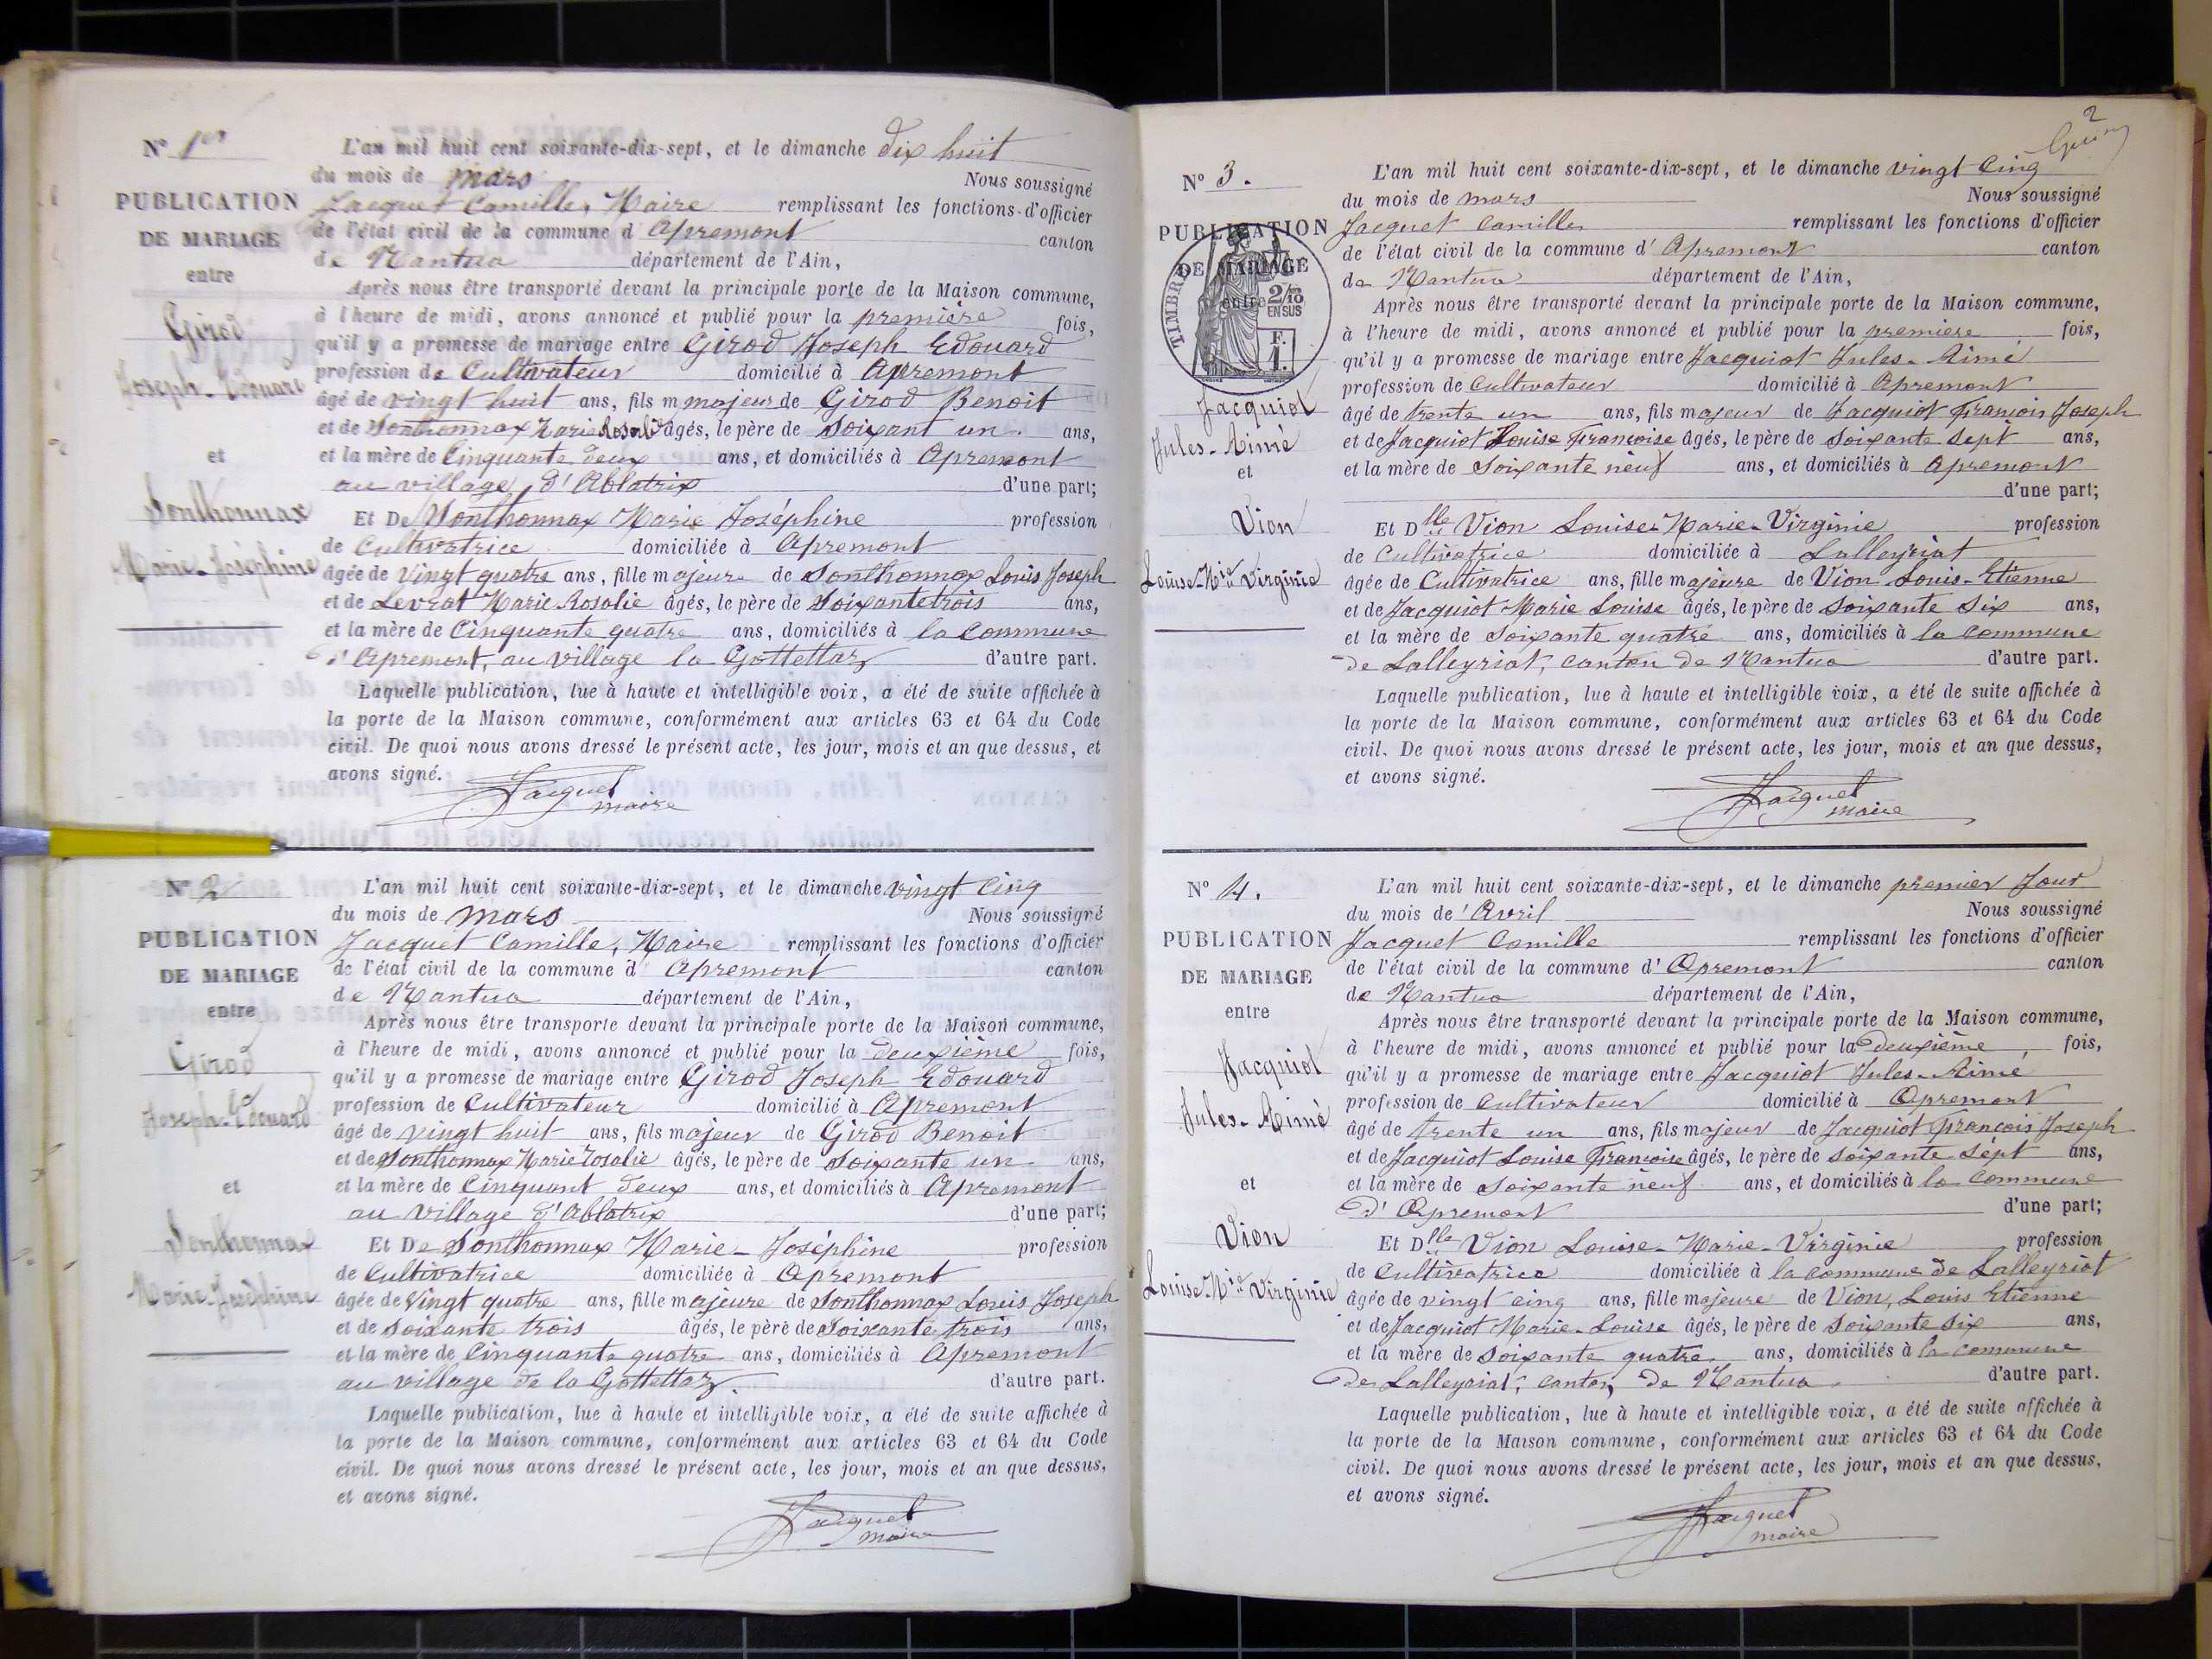 N° 1er
PUBLICATION
DE MARIAGE
entre
Girod
Joseph-Edouard
et
Sonthonnax
Marie-Joséphine
L'an mil huit cent soixante-dix-sept, et le dimanche dix huit
du mois de mars Nous soussigné
Jacquet Camille, Maire remplissant les fonctions d'officier
de l'état civil de la commune d'Apremont canton
de Nantua département de l'Ain,
Après nous être transporté devant la principale porte de la Maison commune,
à l'heure de midi, avons annoncé et publié pour la première fois,
qu'il y a promesse de mariage entre Girod Joseph Edouard
profession de Cultivateur domicilié à Apremont
âgé de vingt huit ans, fils majeur de Girod Benoit
et de Sonthonnax Marie Rosalie âgés, le père de Soixant un ans,
et la mère de Cinquante deux ans, et domiciliés à Apremont
au village d'Ablatrix d'une part;
Et De Sonthonnax Marie Joséphine profession
de Cultivatrice domiciliée à Apremont
âgée de vingt quatre ans, fille majeure de Sonthonnax Louis Joseph
et de Levrat Marie Rosalie âgés, le père de Soixante trois ans,
et la mère de Cinquante quatre ans, domiciliés à la Commune
d'Apremont, au village la Gottettaz d'autre part.
Laquelle publication, lue à haute et intelligible voix, a été de suite affichée à
la porte de la Maison commune, conformément aux articles 63 et 64 du Code
civil. De quoi nous avons dressé le présent acte, les jour, mois et an que dessus, et
avons signé.
Jacquet
maire
N° 2
PUBLICATION
DE MARIAGE
entre
Girod
Joseph-Edouard
et
Sonthonnax
Marie-Joséphine
L'an mil huit cent soixante-dix-sept, et le dimanche vingt cinq
du mois de mars Nous soussigné
Jacquet Camille, Maire remplissant les fonctions d'officier
de l'état civil de la commune d'Apremont canton
de Nantua département de l'Ain,
Après nous être transporté devant la principale porte de la Maison commune,
à l'heure de midi, avons annoncé et publié pour la deuxième fois,
qu'il y a promesse de mariage entre Girod Joseph Edouard
profession de Cultivateur domicilié à Apremont
âgé de vingt huit ans, fils majeur de Girod Benoit
et de Sonthonnax Marie Rosalie âgés, le père de Soixante un ans,
et la mère de Cinquant deux ans, et domiciliés à Apremont
au village d'Ablatrix d'une part;
Et De Sonthonnax Marie-Joséphine profession
de Cultivatrice domiciliée à Apremont
âgée de vingt quatre ans, fille majeure de Sonthonnax Louis Joseph
et de soixante trois âgés, le père de Soixante trois ans,
et la mère de Cinquante quatre ans, domiciliés à Apremont
au village de la Gottettaz. d'autre part.
Laquelle publication, lue à haute et intelligible voix, a été de suite affichée à
la porte de la Maison commune, conformément aux articles 63 et 64 du Code
civil. De quoi nous avons dressé le présent acte, les jour, mois et an que dessus,
et avons signé.
Jacquet
maire
2
N° 3.
PUBLICATION
DE MARIAGE
entre
TIMBRE
2/10
EN SUS
F.
1.
Jacquiot
Jules-Aimé
et
Vion
Louise-Mie Virginie
L'an mil huit cent soixante-dix-sept, et le dimanche vingt cinq
du mois de mars Nous soussigné
Jacquet Camille remplissant les fonctions d'officier
de l'état civil de la commune d'Apremont canton
de Nantua département de l'Ain,
Après nous être transporté devant la principale porte de la Maison commune,
à l'heure de midi, avons annoncé et publié pour la première fois,
qu'il y a promesse de mariage entre Jacquiot Jules-Aimé
profession de cultivateur domicilié à Apremont
âgé de trente un ans, fils majeur de Jacquiot François Joseph
et de Jacquiot Louise Françoise âgés, le père de Soixante sept ans,
et la mère de Soixante neuf ans, et domiciliés à Apremont
d'une part;
Et Dlle Vion Louise-Marie-Virginie profession
de Cultivatrice domiciliée à Lalleyriat
âgée de Cultivatrice ans, fille majeure de Vion Louis-Etienne
et de Jacquiot Marie Louise âgés, le père de soixante six ans,
et la mère de Soixante quatre ans, domiciliés à la commune
de Lalleyriat, canton de Nantua d'autre part.
Laquelle publication, lue à haute et intelligible voix, a été de suite affichée à
la porte de la Maison commune, conformément aux articles 63 et 64 du Code
civil. De quoi nous avons dressé le présent acte, les jour, mois et an que dessus,
et avons signé.
Jacquet
maire
N° 4.
PUBLICATION
DE MARIAGE
entre
Jacquiot
Jules-Aimé
et
Vion
Louise-Mie Virginie
L'an mil huit cent soixante-dix-sept, et le dimanche premier Jour
du mois d'Avril Nous soussigné
Jacquet Camille remplissant les fonctions d'officier
de l'état civil de la commune d'Apremont canton
de Nantua département de l'Ain,
Après nous être transporté devant la principale porte de la Maison commune,
à l'heure de midi, avons annoncé et publié pour la deuxième fois,
qu'il y a promesse de mariage entre Jacquiot Jules-Aimé
profession de cultivateur domicilié à Apremont
âgé de trente un ans, fils majeur de Jacquiot François Joseph
et de Jacquiot Louise Françoise âgés, le père de soixante sept ans,
et la mère de soixante neuf ans, et domiciliés à la commune
D'Apremont d'une part;
Et Dlle Vion Louise-Marie-Virginie profession
de Cultivatrice domiciliée à la commune de Lalleyriat
âgée de vingt cinq ans, fille majeure de Vion, Louis Etienne
et de Jacquiot Marie-Louise âgés, le père de soixante six ans,
et la mère de soixante quatre ans, domiciliés à la commune
de Lalleyriat, canton de Nantua. d'autre part.
Laquelle publication, lue à haute et intelligible voix, a été de suite affichée à
la porte de la Maison commune, conformément aux articles 63 et 64 du Code
civil. De quoi nous avons dressé le présent acte, les jour, mois et an que dessus,
et avons signé.
Jacquet
maire